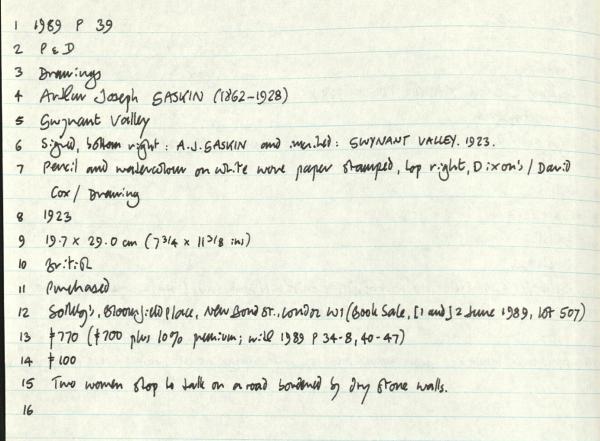 1 1989 P 39
2 P & D
3 Drawings
4 Arthur Joseph GASKIN (1862-1928)
5 Gwynant Valley
6 Signed, bottom right: A.J.GASKIN and inscribed: GWYNANT VALLEY. 1923.
7 Pencil and watercolour on white wove paper stamped, top right, Dixon's / David
Cox / Drawing
8 1923
9 19.7 x 29.0 cm (7 3/4 x 11 3/8 ins)
10 British
11 Purchased
12 Sotheby's, Bloomfield Place, New Bond St., London W1 (Book Sale, [1 and] 2 June 1989, lot 507)
13 £770 (£700 plus 10% premium; with 1989 P 34-8, 40-47)
14 £100
15 Two women stop to talk on a road bordered by dry stone walls.
16